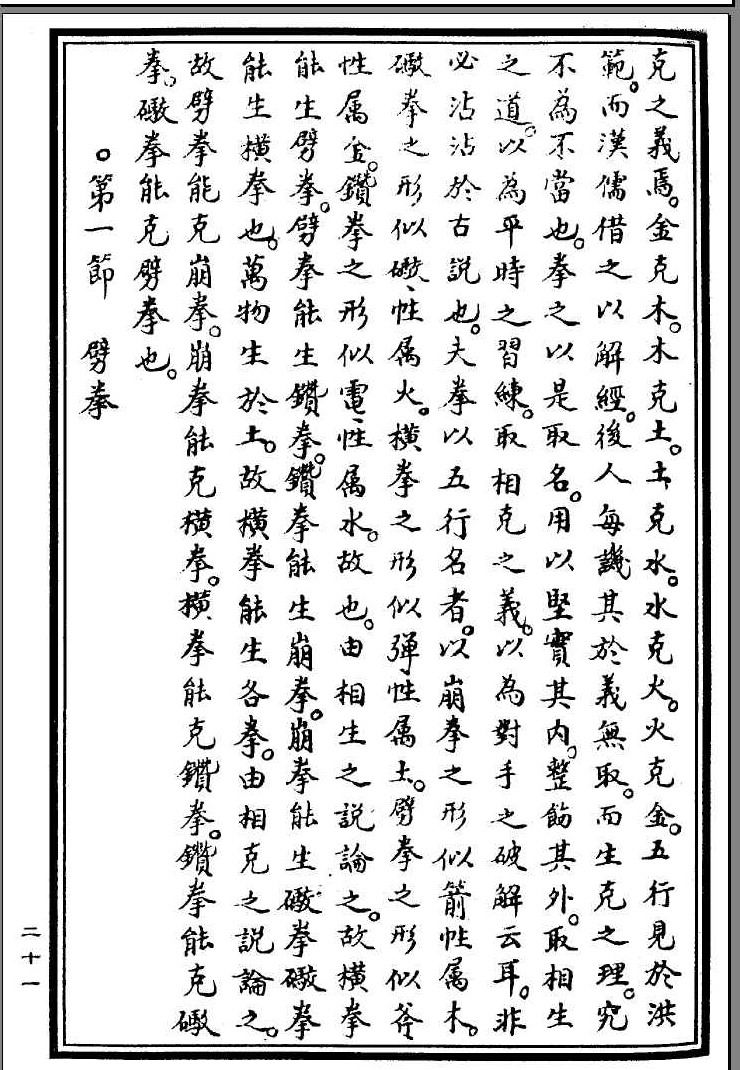 克之義焉。金克木。木克土。土克水。水克火。火克金。五行見於洪
範。而漢儒借之以解經。後人每譏其於義無取。而生克之理。究
不為不當也。拳之以是取名。用以堅實其內。整飭其外。取相生
之道。以為平時之習練。取相克之義。以為對手之破解云耳。非
必沾沾於古說也。夫拳以五行名者。以崩拳之形似箭性属木。
礮拳之形似礮、性属火。橫拳之形似弹性属土。劈拳之形似斧
性属金。鑽拳之形似電、性属水。故也。由相生之説論之。故橫拳
能生劈拳。劈拳能生鑽拳。鑽拳能生崩拳。崩拳能生礮拳礮拳
能生橫拳也。萬物生於土。故橫拳能生各拳。由相克之説論之。
故劈拳能克崩拳。崩拳能克橫拳。橫拳能克鑽拳。鑽拳能克礮
拳。礮拳能克劈拳也。
。第一節 劈拳
二十一